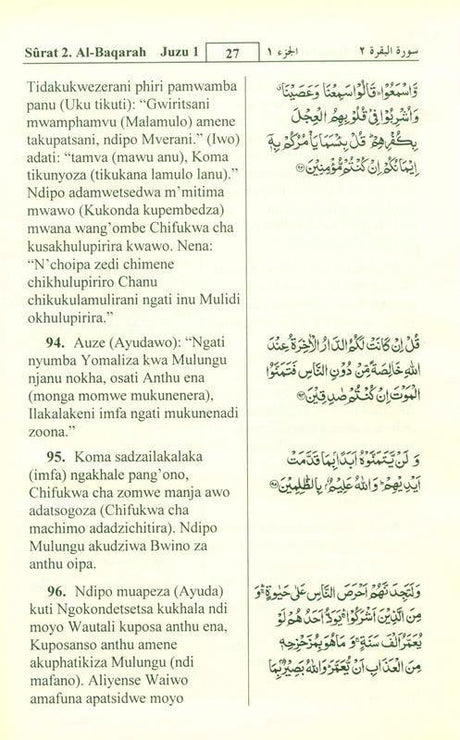 Sûrat 2. Al-Baqarah Juzu 1 27 الجزء ١ سورة البقرة ٢
Tidakukwezerani phiri pamwamba
panu (Uku tikuti): “Gwiritsani
mwamphamvu (Malamulo) amene
takupatsani, ndipo Mverani.” (Iwo)
adati: “tamva (mawu anu), Koma
tikunyoza (tikukana lamulo lanu).”
Ndipo adamwetsedwa m’mitima
mwawo (Kukonda kupembedza)
mwana wang’ombe Chifukwa cha
kusakhulupirira kwawo. Nena:
“N’choipa zedi chimene
chikhulupiriro Chanu
chikukulamulirani ngati inu Mulidi
okhulupirira.”
94. Auze (Ayudawo): “Ngati
nyumba Yomaliza kwa Mulungu
njanu nokha, osati Anthu ena
(monga momwe mukunenera),
Ilakalakeni imfa ngati mukunenadi
zoona.”
95. Koma sadzailakalaka
(imfa) ngakhale pang’ono,
Chifukwa cha zomwe manja awo
adatsogoza (Chifukwa cha
machimo adadzichitira). Ndipo
Mulungu akudziwa Bwino za
anthu oipa.
96. Ndipo muapeza (Ayuda)
kuti Ngokondetsetsa kukhala ndi
moyo Wautali kuposa anthu ena,
Kuposanso anthu amene
akuphatikiza Mulungu (ndi
mafano). Aliyense Waiwo
amafuna apatsidwe moyo
وَّاسْمَعُوْا ۗ قَالُوْا سَمِعْنَا وَعَصَيْنَا ۗ
وَأُشْرِبُوْا فِيْ قُلُوْبِهِمُ الْعِجْلَ
بِكُفْرِهِمْ ۗ قُلْ بِئْسَمَا يَأْمُرُكُمْ بِهٖٓ
اِيْمَانُكُمْ اِنْ كُنْتُمْ مُّؤْمِنِيْنَ ﴿٩٣﴾
قُلْ اِنْ كَانَتْ لَكُمُ الدَّارُ الْاٰخِرَةُ عِنْدَ
اللّٰهِ خَالِصَةً مِّنْ دُوْنِ النَّاسِ فَتَمَنَّوُا
الْمَوْتَ اِنْ كُنْتُمْ صٰدِقِيْنَ ﴿٩٤﴾
وَلَنْ يَّتَمَنَّوْهُ اَبَدًۢا بِمَا قَدَّمَتْ
اَيْدِيْهِمْ ۗ وَاللّٰهُ عَلِيْمٌۢ بِالظّٰلِمِيْنَ ﴿٩٥﴾
وَلَتَجِدَنَّهُمْ اَحْرَصَ النَّاسِ عَلٰى حَيٰوةٍ ۛ وَ
مِنَ الَّذِيْنَ اَشْرَكُوْا ۛ يَوَدُّ اَحَدُهُمْ لَوْ
يُعَمَّرُ اَلْفَ سَنَةٍ ۚ وَمَا هُوَ بِمُزَحْزِحِهٖ
مِنَ الْعَذَابِ اَنْ يُّعَمَّرَ ۗ وَاللّٰهُ بَصِيْرٌۢ بِمَا